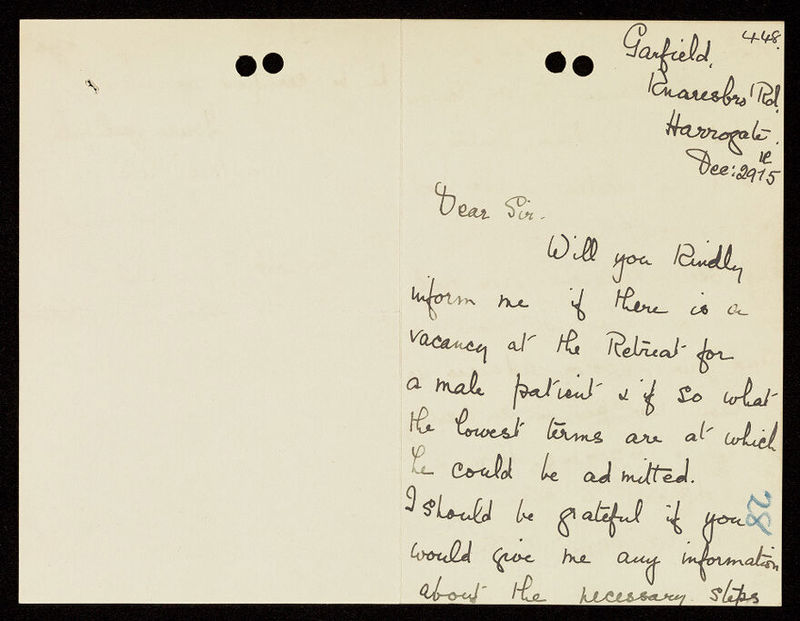 448.
Garfield,
Knaresbro' Rd.
Harrogate.
Dec: 29 15
Dear Sir.
Will you kindly
inform me if there is a
vacancy at the Retreat for
a male patient & if so what
the lowest terms are at which
he could be admitted.
I should be grateful if you
28
would give me any information
about the necessary steps